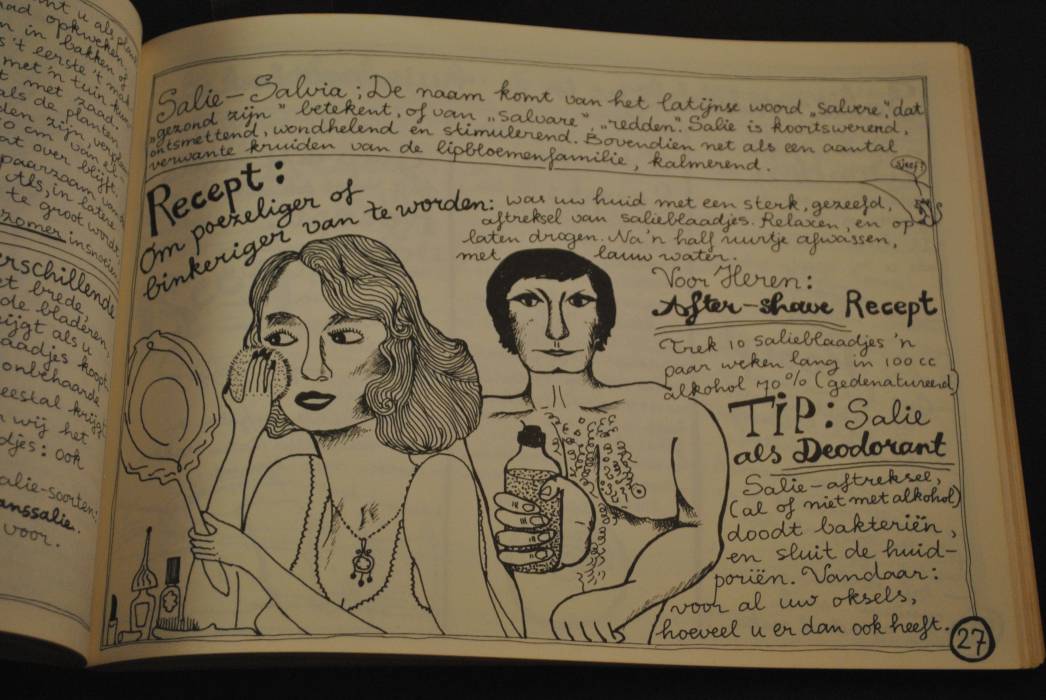 nt u als plan
ad opkweken,
n in bakken of
s 't eerste 't mak
met 'n tuin kun
t met zaad.
als de planten
den zijn, verplan
o cm van el
at over blijft.
paarzaam van
Als, in latere
te groot wordt
zomer insnoeien
erschillende
et brede,
de bladeren,
ijgt als u
aadjes koopt.
onbehaarde
eestal krijgt
n wij het
djes: ook
alie-soorten:
anssalie.
voor.
Salie – Salvia ; De naam komt van het latijnse woord „salvere", dat
„gezond zijn" betekent, of van „salvare", „redden". Salie is koortswerend,
ontsmettend, wondhelend en stimulerend. Bovendien net als een aantal
verwante kruiden van de lipbloemenfamilie, kalmerend.
Recept:
Om poezeliger of
binkeriger van te worden: was uw huid met een sterk, gezeefd,
aftreksel van salieblaadjes. Relaxen, en op
laten drogen. Na 'n half uurtje afwassen,
met lauw water.
Voor Heren:
After-shave Recept
Trek 10 salieblaadjes 'n
paar weken lang in 100 cc
alkohol 70% (gedenatureerd)
TiP: Salie
als Deodorant
Salie-aftreksel,
(al of niet met alkohol)
doodt bakteriën,
en sluit de huid-
poriën. Vandaar:
voor al uw oksels,
hoeveel u er dan ook heeft.
27